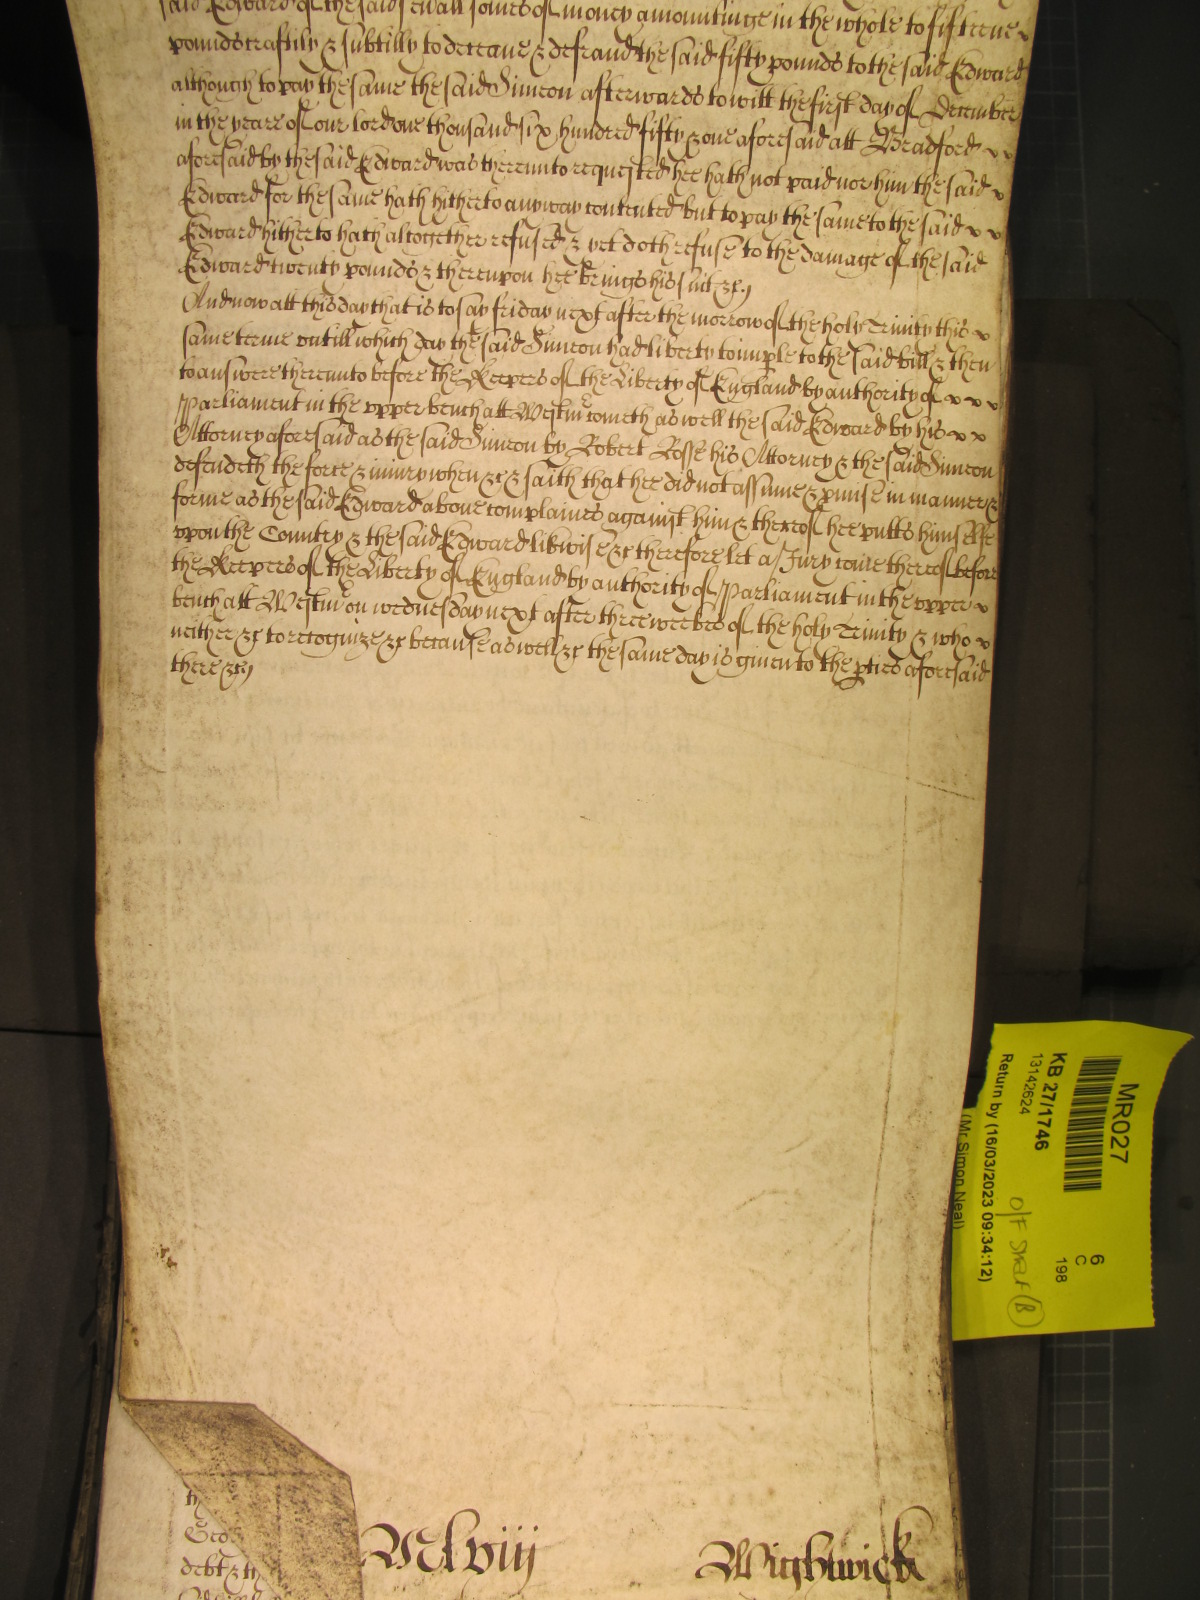 said Edward of the said sevall somes of money amountinge in the whole to fifteene
pounds craftily & subtilly to deceave & defraud the said fifty pounds to the said Edward
although to pay the same the said Simeon afterwards to witt the first day of December
in the yeare of our lord one thousand six hundred fifty & one aforesaid att Bradford
aforesaid by the said Edward was thereunto requested hee hath not paid nor him the said
Edward for the same hath hitherto anyway contented but to pay the same to the said
Edward hitherto hath altogether refused & yet doth refuse to the damage of the said
Edward twenty pounds & thereupon hee brings his suit &c
And now att this day that is to say friday next after the morrow of the holy Trinity this
same terme untill which day the said Simeon had liberty to imple to the said bill & then
to answere thereunto before the Keepers of the Liberty of England by authority of
Parliament in the upper bench att Westmr cometh as well the said Edward by his
Attorney aforesaid as the said Simeon by Robert Rosse his Attorney & the said Simeon
defendeth the force & iniury when &c & saith that hee did not assume & pmise in manner &
forme as the said Edward above complaines against him & thereof hee putts himselfe
upon the Country & the said Edward likwise &c therefore let a Jury come thereof before
the Keepers of the Liberty of England by authority of Parliament in the upper
bench att Westmr on wednesday next after three weekes of the holy Trinity & who
neither &c to recognize &c because as well &c the same day is given to the pties aforesaid
there &c
MR027
KB 27/1746
13142624
Return by (16/03/2023 09:34:12)
(Mr Simon Neal)
6
C
198
O/F Shelf (B)
th
Geo
debt & th
Mlviij
Wightwick